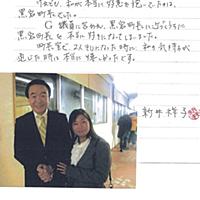 けれども、私が本当に好意を抱いていたのは、
黒岩町長でした。
G議員に言われ、黒岩町長に
黒岩町長を本当に好きになってしまいました。
町長室で、2人きりになった時に 私の気持ちが
通じた時は本当に嬉しかったです。
新井祥子